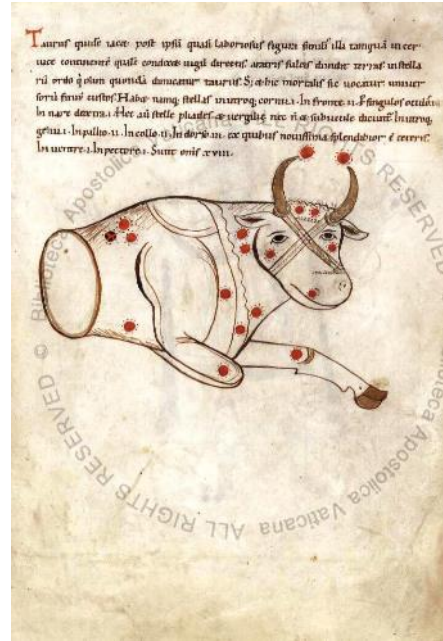 Taurus quinsꝫ iacet post ipsū quasi laboriosus figura simił illi tamquā in cer
uice continentē quasi condere iugū directis aratris sulcis diuidit terras in stella
rū ordo q̇ olim quondā dimicatur taurus. Sꝫ & hic mortalis sic uocatur uniuer
sorū firm' custos. Habꝫ namqꝫ stellas inutroqꝫ cornu .i. In fronte .ii. P singulos oculos .i.
In nare dextra .i. Hec aū stelle pliades & uergilię nec n̄ & subucule dicunt̄. In utroqꝫ
genu .i. In pallio .ii. In collo .ii. In dorso .iii. ex quibus nouissima splendidior ē ceteris.
In uentre .i. In pectore .i. Sunt onīs xviii.
© Biblioteca Apostolica Vaticana ALL RIGHTS RESERVED